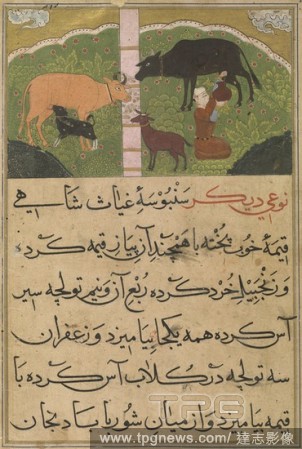 نوعی دیگر سنبوسهٔ غیاث شاهی
قیمهٔ خوب پخته با همچند آن پیاز قیمه کرده
و زنجبیل خرد کرده ربع آن و نیم تولچه سیر
آس کرده همه یکجا بیامیزد و زعفران
سه تولچه در گلاب آس کرده با
قیمه بیامیزد و از میان شوربا بادنجان
TPG
www.tpgnews.com / 達志影像